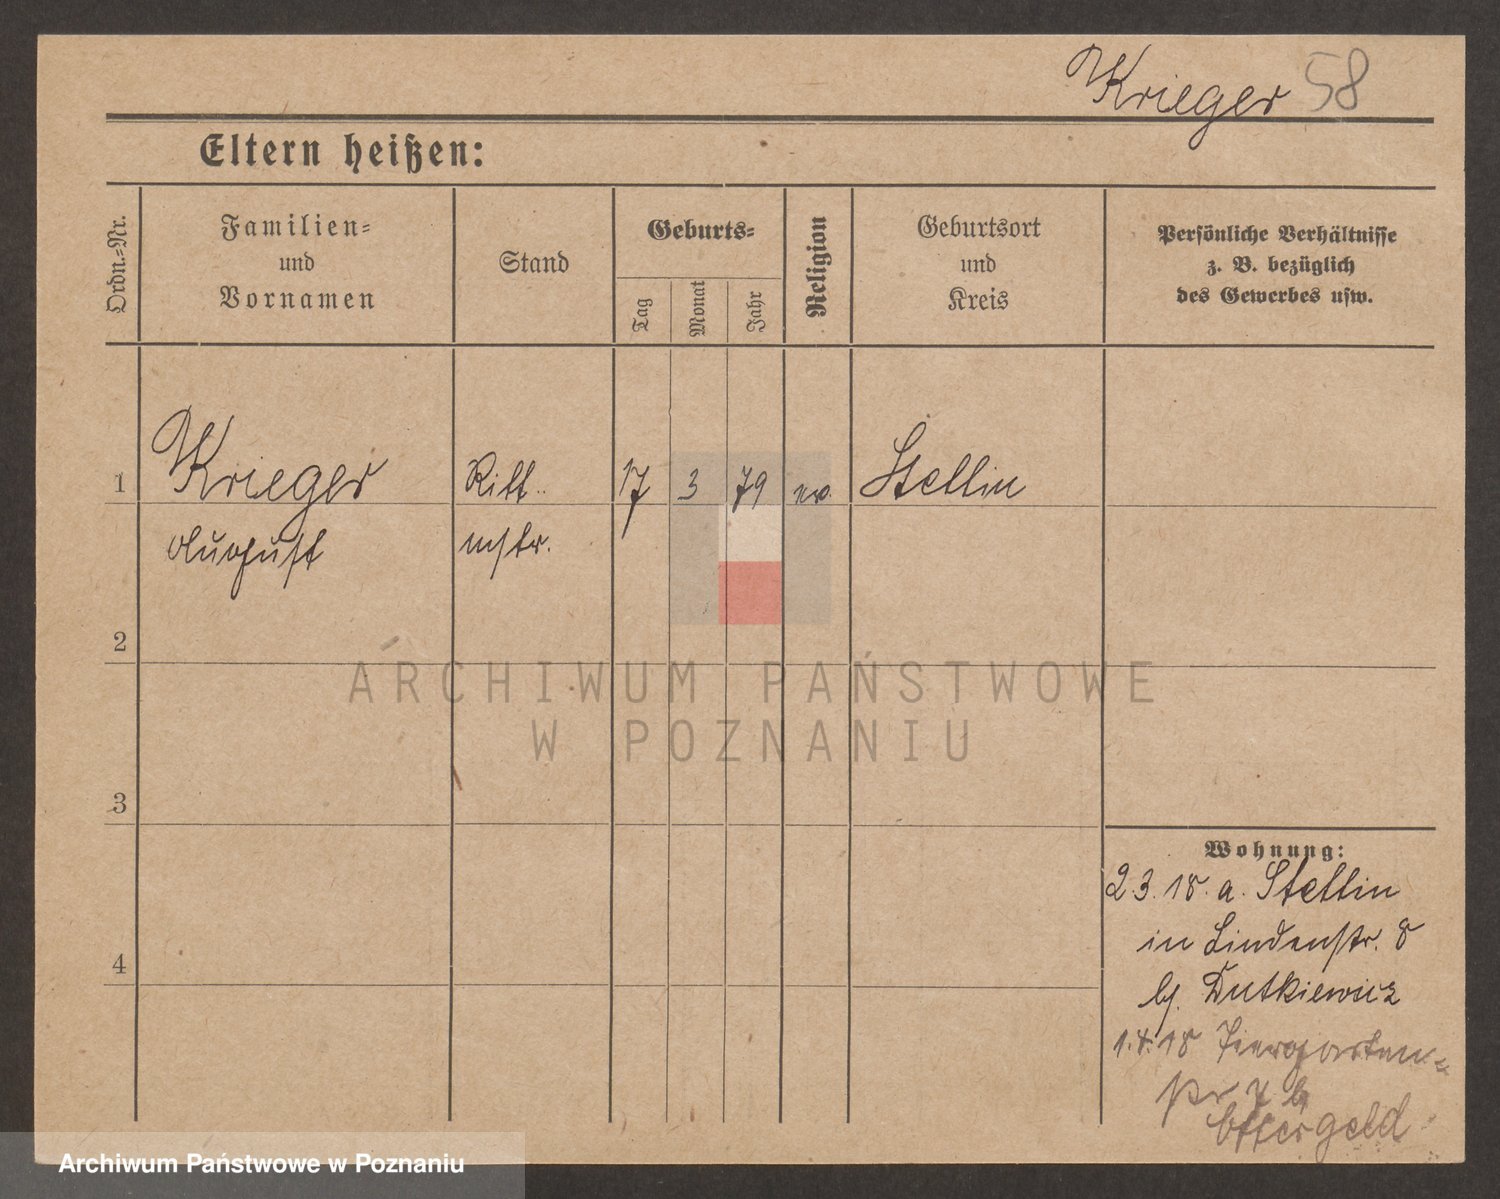 Krieger 58
Eltern heißen:
Ordn.-Nr.
Familien-
und
Vornamen
Stand
Geburts-
Tag
Monat
Jahr
Religion
Geburtsort
und
Kreis
Persönliche Verhältnisse
z. B. bezüglich
des Gewerbes usw.
1 Krieger Ritt- 17 3 79 ev. Stettin
August mstr.
2
3
4
Wohnung:
2.3.18. a. Stettin
in Lindenstr. 8
bj. Dutkiewicz
1.4.18 Tiergarten-
7 bj
ARCHIWUM PAŃSTWOWE
W POZNANIU
Archiwum Państwowe w Poznaniu